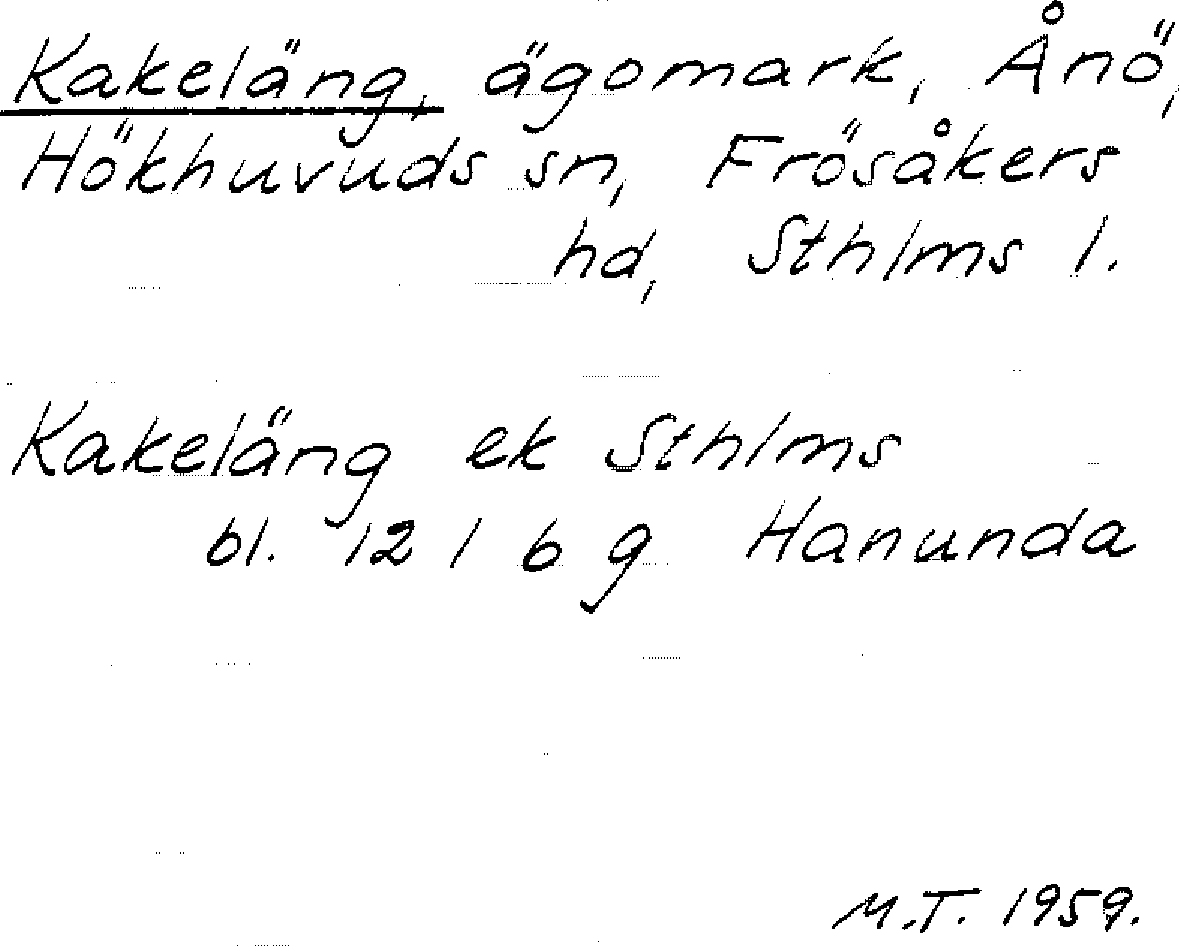 Kakeläng, ägomark, Ånö,
Hökhuvuds sn, Frösåkers
hd, Sthlms l.
Kakeläng ek Sthlms
bl. 12 I 6 g Hanunda
M.T. 1959.